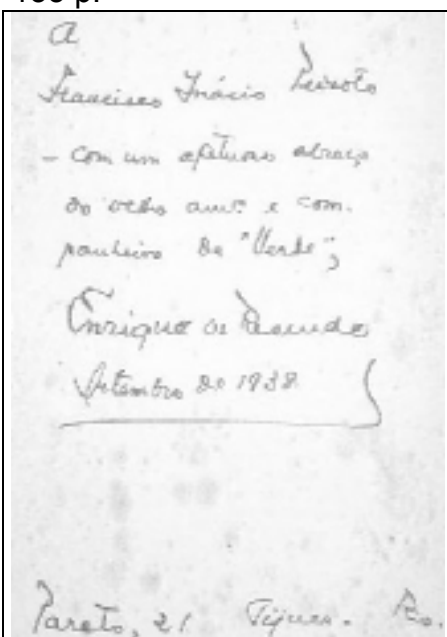 A
Francisco Inácio Peixoto
– com um afetuoso abraço
do velho amº e com-
panheiro de "Verde",
Enrique de Resende
Setembro de 1938
Pareto, 21 Tijuca. Rio.